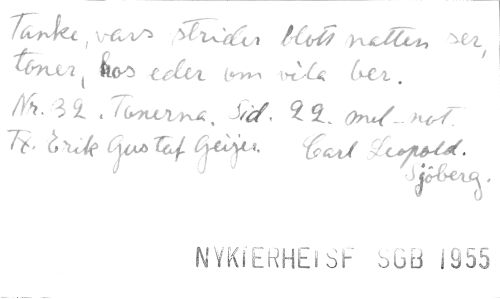 Tanke, vars strider blott natten ser,
toner, hos eder om vila ber.
Nr. 32. Tonerna. Sid. 22. mel-not.
Tx. Erik Gustaf Geijer. Carl Leopold.
Sjöberg.
NYKTERHETSF SGB 1955